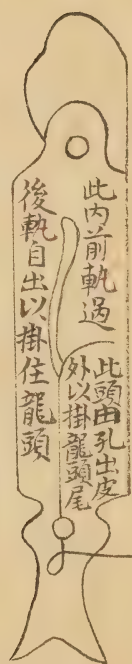 此内前軌過
此頭由孔出皮
外以掛龍頭尾
後軌自出以掛住龍頭